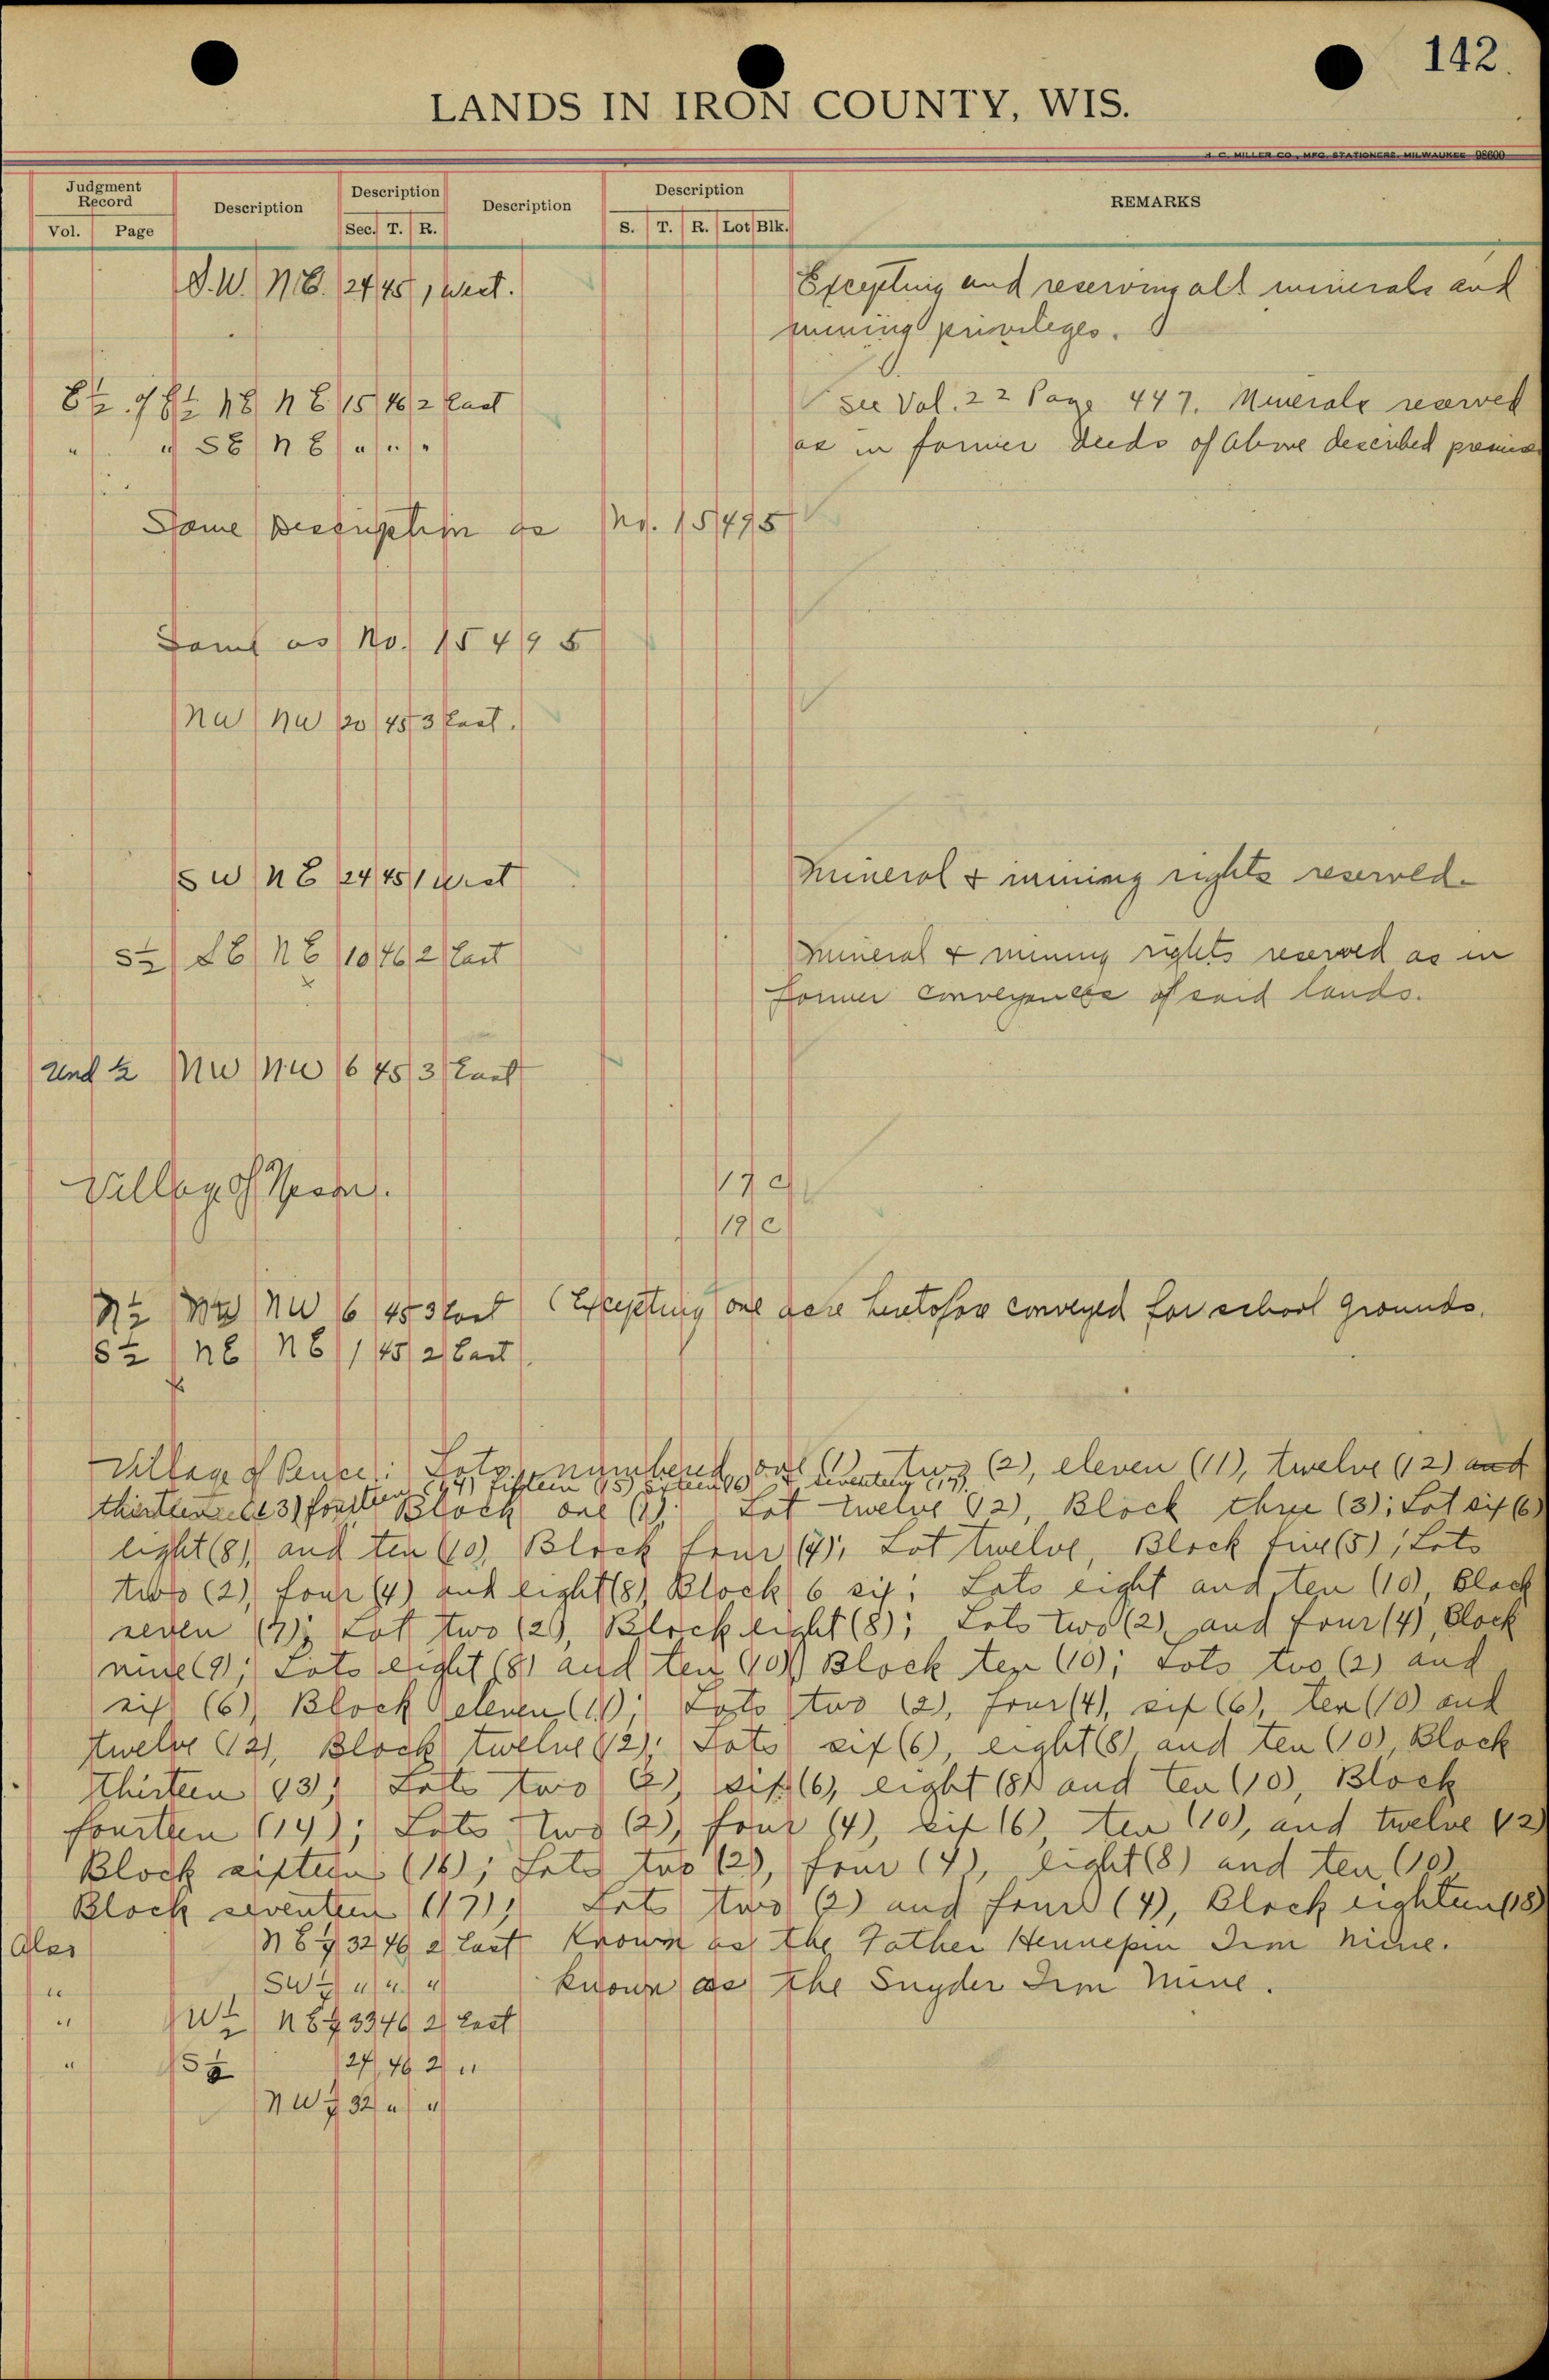 142.
LANDS IN IRON COUNTY, WIS.
H. C. MILLER CO., MFG. STATIONERS, MILWAUKEE 98600
Judgment Record Description Description Description Description REMARKS
Vol. Page Sec. T. R. S. T. R. Lot Blk.
S.W. N.E. 24 45 1 West. Excepting and reserving all minerals and
mining privileges.
E½ of E½ NE NE 15 46 2 East See Vol. 22 Page 447. Minerals reserved
" " SE NE " " " as in former deeds of above described premises
Same Description as No. 15495
Same as No. 15495
NW NW 20 45 3 East.
SW NE 24 45 1 West Mineral & mining rights reserved.
S½ SE NE 10 46 2 East Mineral & mining rights reserved as in
former conveyances of said lands.
Und ½ NW NW 6 45 3 East
Village of 17 C
19 C
N½ NW NW 6 45 3 East (Excepting one acre heretofore conveyed for school grounds.
S½ NE NE 1 45 2 East
Village of Pence: Lots numbered one (1) two (2), eleven (11), twelve (12) and
fourteen (14) fifteen (15) sixteen (16) & seventeen (17)
thirteen (13) Block one (1); Lot twelve (12), Block three (3); Lot six (6)
eight (8), and ten (10), Block four (4); Lot twelve, Block five (5); Lots
two (2), four (4) and eight (8), Block 6 six; Lots eight and ten (10), Block
seven (7); Lot two (2), Block eight (8); Lots two (2) and four (4), Block
nine (9); Lots eight (8) and ten (10) Block ten (10); Lots two (2) and
six (6), Block eleven (11); Lots two (2), four (4), six (6), ten (10) and
twelve (12), Block twelve (12); Lots six (6), eight (8) and ten (10), Block
thirteen (13); Lots two (2), six (6), eight (8) and ten (10), Block
fourteen (14); Lots two (2), four (4), six (6), ten (10), and twelve (12)
Block sixteen (16); Lots two (2), four (4), eight (8) and ten (10)
Block seventeen (17); Lots two (2) and four (4), Block eighteen (18)
Also NE¼ 32 46 2 East Known as the Father Hennepin Iron Mine.
" SW¼ " " " known as the Snyder Iron Mine.
" W½ NE¼ 33 46 2 East
" S½ 27 46 2 "
NW¼ 32 " "